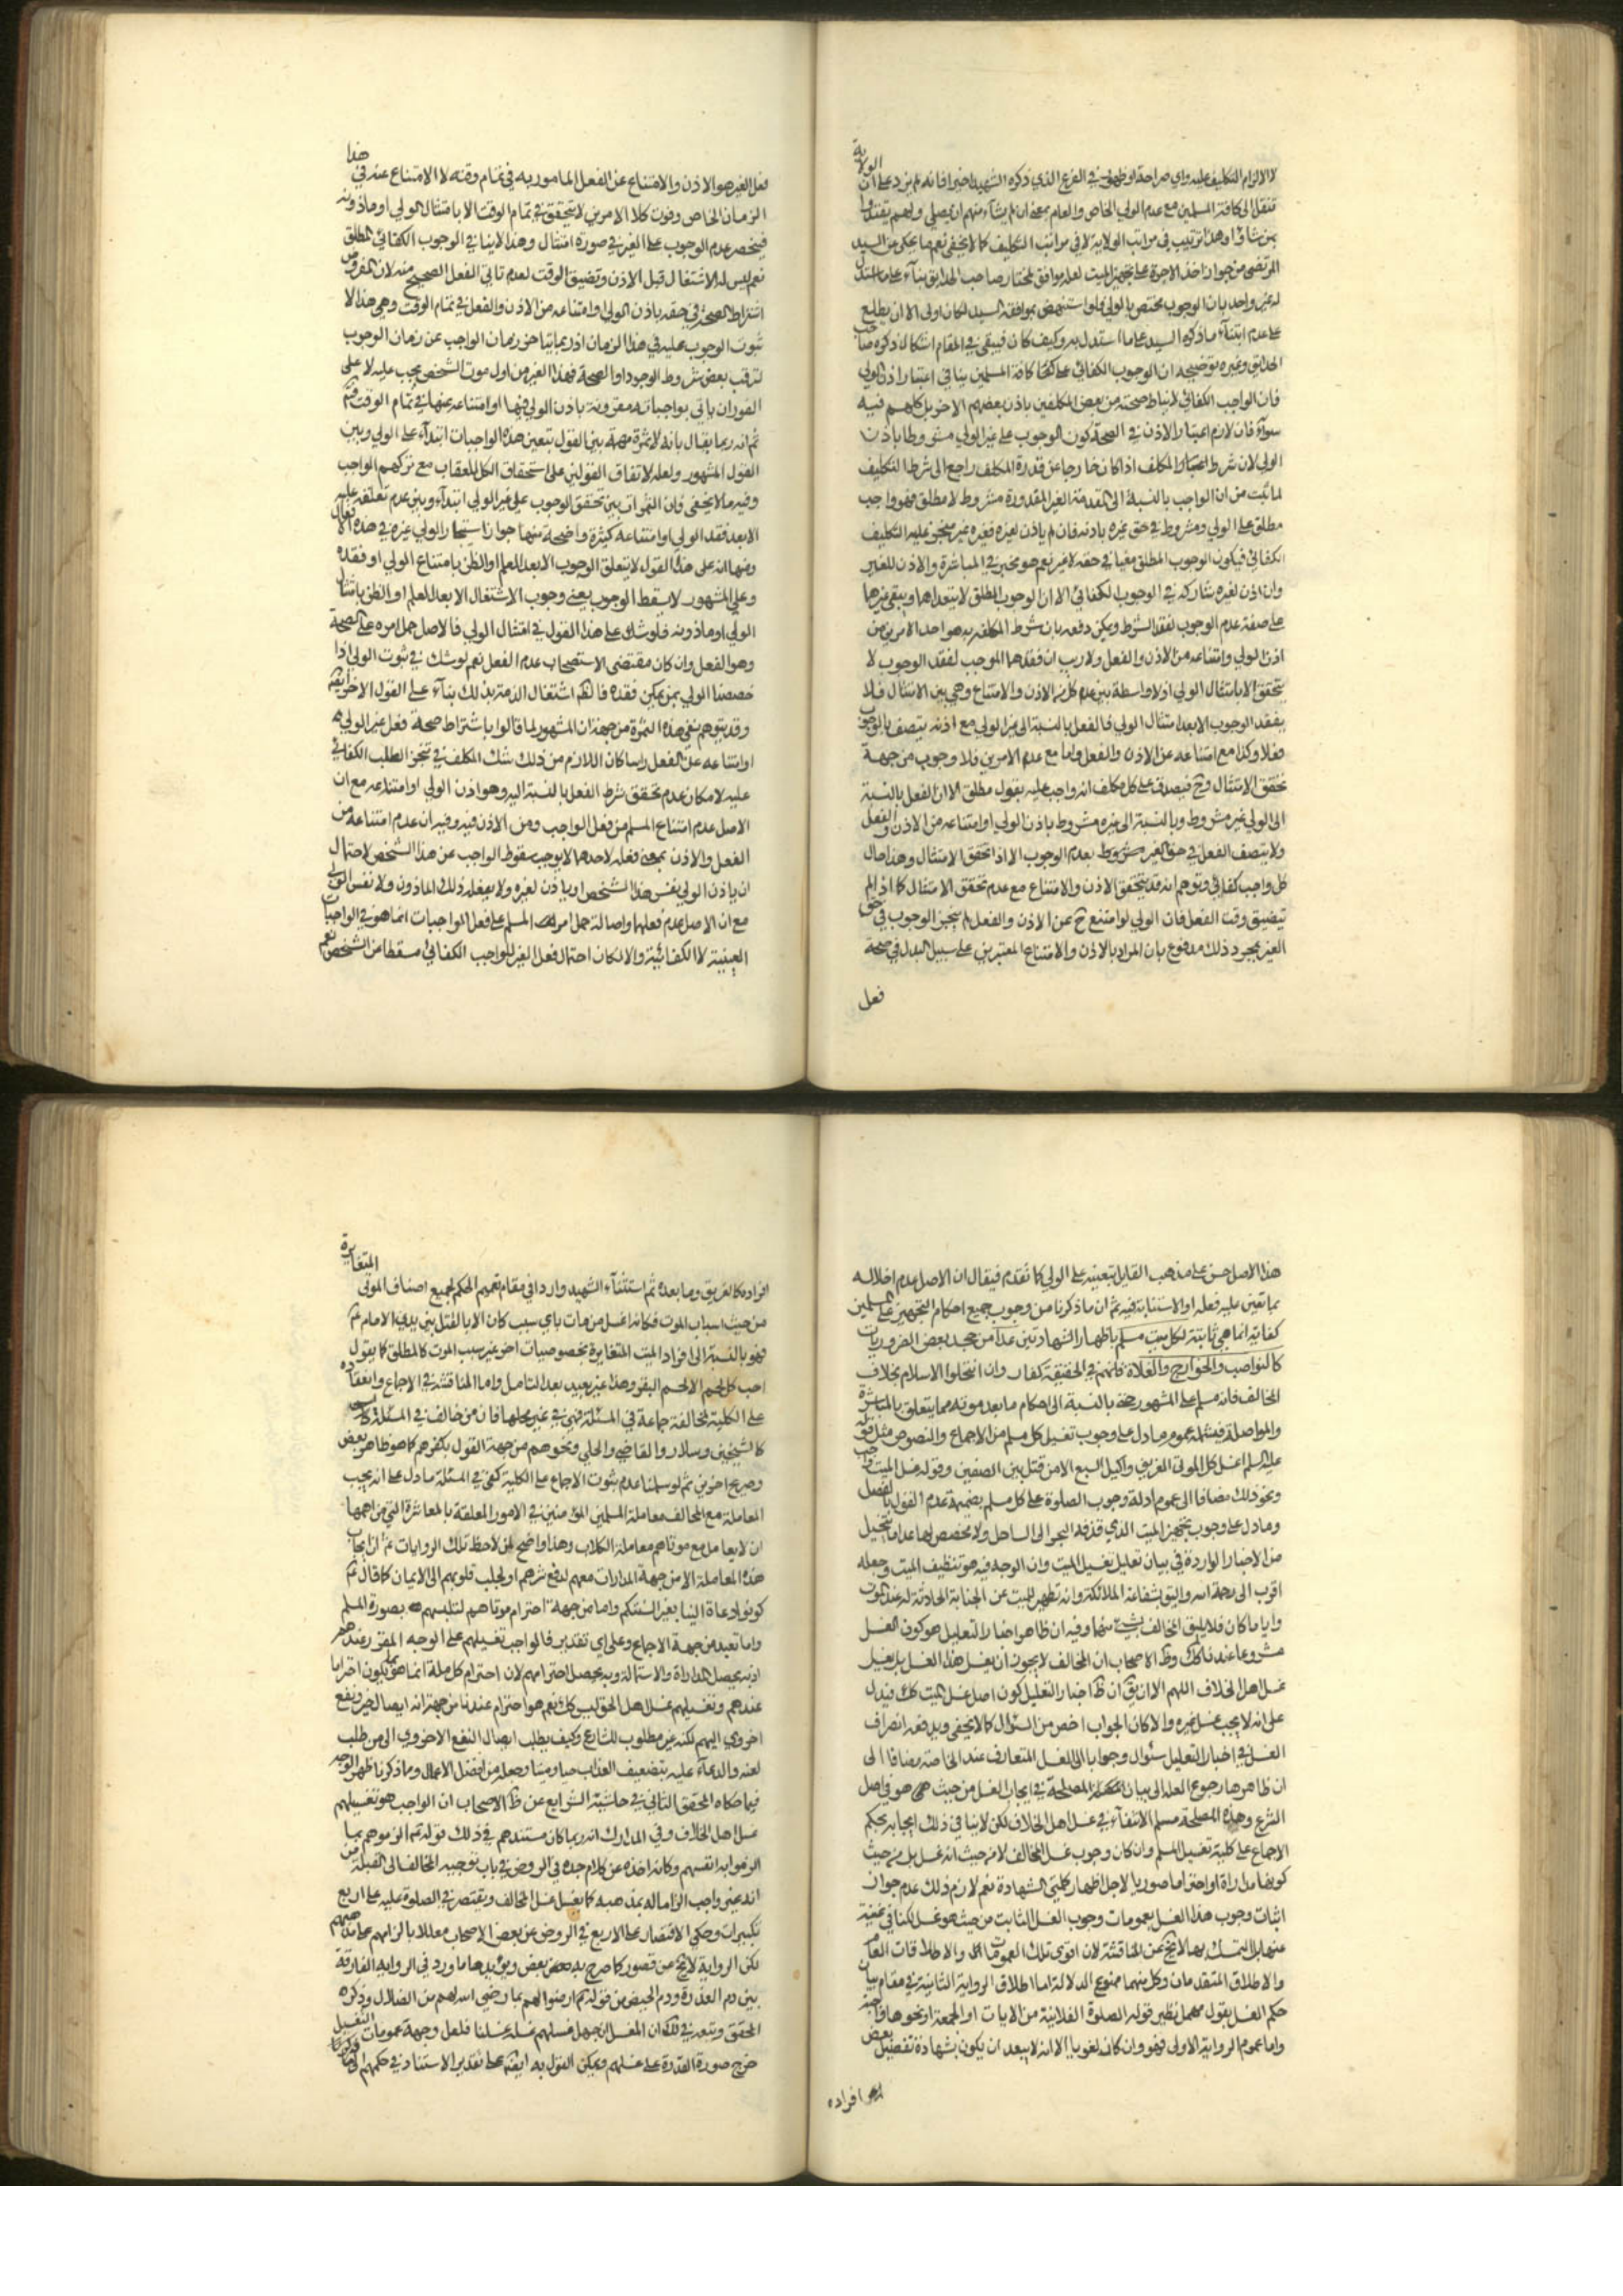 لا الالزام التكليف عليه واي صراحة او ظهور في الفرع الذي ذكره الشهيد اخيرا فانه لم يزد على ان الولاية
تنتقل الى كافة المسلمين مع عدم الولي الخاص والعام بمعنى ان لم يشأ منهم ان يصلي ولهم
بمن شاؤا وهذا ترتيب في مراتب الولاية لا في مراتب التكليف كما لا يخفى نعم ما يحكى من السيد
المرتضى من جواز اخذ الاجرة على تجهيز الميت لعله موافق لمختار صاحب الحدايق بناء على ما استدل
له غير واحد بان الوجوب مختص بالولي فلو استنهض بموافقة السيد لكان اولى الا ان يطلع
على عدم ابتناء ما ذكره السيد على ما استدل به وكيف كان فيبقى في المقام اشكال ذكره صاحب
الحدايق وغيره توضيحه ان الوجوب الكفائي على كافة المسلمين ينافي اعتبار اذن الولي
فان الواجب الكفائي لا يناط صحته من بعض المكلفين باذن بعضهم الاخر بل كلهم فيه
سواء فان لازم اعتبار الاذن في الصحة كون الوجوب على غير الولي مشروطا باذن
الولي لان شرط اعتبار المكلف اذا كان خارجا عن قدرة المكلف راجع الى شرط التكليف
لما ثبت من ان الواجب بالنسبة الى المقدمة الغير المقدورة مشروط لا مطلق فهو واجب
مطلق على الولي ومشروط في حق غيره باذنه فان لم ياذن لغيره فغيره غير منجز عليه التكليف
الكفائي فيكون الوجوب المطلق في حقه لا غير نعم هو مخير في المباشرة والاذن للغير
وان اذن لغيره شاركه في الوجوب الكفائي الا ان الوجوب المطلق لا يتعداهما ويبقى غيرهما
على صفة عدم الوجوب لفقد الشرط ويمكن دفعه بان شرط المكلف به هو احد الامرين من
اذن الولي وامتناعه من الاذن والفعل ولا ريب ان فقدهما الموجب لفقد الوجوب لا
يتحقق الا بامتثال الولي اذ لا واسطة بين عدم كل من الاذن والامتناع وبين الامتثال فلا
يفقد الوجوب الا بعد امتثال الولي فالفعل بالنسبة الى غير الولي مع اذنه يتصف بالوجوب
فعلا وكذا مع امتناعه عن الاذن والفعل واما مع عدم الامرين فلا وجوب من جهة
تحقق الامتثال وح فيصدق على كل مكلف انه واجب عليه بقول مطلق الا ان الفعل بالنسبة
الى الولي غير مشروط وبالنسبة الى غيره مشروط باذن الولي او امتناعه من الاذن والفعل
ولا يتصف الفعل في حق الغير بعدم الوجوب الا اذا تحقق الامتثال وهذا حال
كل واجب كفائي وتوهم انه قد يتحقق الاذن والامتناع مع عدم تحقق الامتثال كما اذا لم
يتضيق وقت الفعل فان الولي لو امتنع ح عن الاذن والفعل لم ينجز الوجوب في حق
الغير بمجرد ذلك مدفوع بان المراد بالاذن والامتناع المعتبرين على سبيل البدل في صحة
فعل
فعل الغير هو الاذن والامتناع عن الفعل المامور به في تمام وقته لا الامتناع عنه في هذا
الزمان الخاص وفوت كلا الامرين لا يتحقق في تمام الوقت الا بامتثال الولي او ماذونه
فينحصر عدم الوجوب على الغير في صورة امتثال وهذا لا ينافي الوجوب الكفائي المطلق
نعم ليس له الاشتغال قبل الاذن وتضيق الوقت لعدم تاتي الفعل الصحيح منه لان المفروض
اشتراط الصحة في حقه باذن الولي او امتناعه من الاذن والفعل في تمام الوقت وهي هذا لا
ثبوت الوجوب عليه في هذا الزمان اذ ربما يتاخر زمان الواجب عن زمان الوجوب
لترقب بعض شروط الوجود او الصحة فهذا الغير من اول موت الشخص يجب عليه لا على
الفور ان ياتي بواجباته مقرونة باذن الولي فيها او امتناعه عنها في تمام الوقت
ثم انه ربما يقال بانه لا ثمرة مهمة بين القول بتعين هذه الواجبات ابتداء على الولي وبين
القول المشهور ولعله لاتفاق القولين على استحقاق الكل للعقاب مع تركهم الواجب
وفيه ما لا يخفى فان الثمرات بين تحقق الوجوب على غير الولي ابتداء وبين عدم تعلقه عليه
الا بعد فقد الولي او امتناعه كثيرة واضحة منها جواز استيجار الولي غيره في هذه الافعال
ومنها انه على هذا القول لا يتعلق الوجوب الا بعد العلم او الظن بامتناع الولي او فقده
وعلى المشهور لا يسقط الوجوب يعني وجوب الاشتغال الا بعد العلم او الظن بامتثال
الولي او ماذونه فلو شك على هذا القول في امتثال الولي فالاصل حمل امره على الصحة
وهو الفعل وان كان مقتضى الاستصحاب عدم الفعل نعم لو شك في ثبوت الولي اذا
خصصنا الولي بمن يمكن فقده فالظ اشتغال الذمة بذلك بناء على القول الاخر ايضا
وقد يتوهم نفي هذه الثمرة من جهة ان المشهور لما قالوا باشتراط صحة فعل غير الولي
او امتناعه عن الفعل راسا كان اللازم من ذلك شك المكلف في تنجز الطلب الكفائي
عليه لامكان عدم تحقق شرط الفعل بالنسبة اليه وهو اذن الولي او امتناعه مع ان
الاصل عدم امتناع المسلم من فعل الواجب ومن الاذن فيه وفيه ان عدم امتناعه من
الفعل والاذن بمعنى فعله لاحدهما لا يوجب سقوط الواجب عن هذا الشخص لاحتمال
ان ياذن الولي نفس هذا الشخص او ياذن لغيره ولا يفعله ذلك الماذون ولا نفس الولي
مع ان الاصل عدم فعلهما واصالة حمل امر المسلم على فعل الواجبات انما هو في الواجبات
العينية لا الكفائية والا لكان احتمال فعل الغير للواجب الكفائي مسقطا عن الشخص نعم
هذا الاصل حسن على مذهب القايل بتعينه على الولي كما تقدم فيقال ان الاصل عدم اخلاله
بما تعين عليه فعله او الاستنابة فيه ثم ان ما ذكرنا من وجوب جميع احكام التجهيز على المسلمين
كفاية انما هي ثابتة لكل ميت مسلم باظهار الشهادتين عدا من جحد بعض الضروريات
كالنواصب والخوارج والغلاة فانهم في الحقيقة كفار وان انتحلوا الاسلام بخلاف
المخالف فانه مسلم على المشهور حتى بالنسبة الى احكام ما بعد موته مما يتعلق بالمباشرة
والمواصلة فيشمله عموم ما دل على وجوب تغسيل كل مسلم من الاجماع والنصوص مثل قوله
عليه السلم اغسل كل الموتى الغريق واكيل السبع الا من قتل بين الصفين وقوله غسل الميت واجب
ونحو ذلك مضافا الى عموم ادلة وجوب الصلوة على كل مسلم بضميمة عدم القول بالفصل
وما دل على وجوب تجهيز الميت الذي قذفه البحر الى الساحل ولا مخصص لها عدا ما يتخيل
من الاخبار الواردة في بيان تعليل تغسيل الميت وان الوجه فيه هو تنظيف الميت وجعله
اقرب الى رحمة الله واليق بشفاعة الملائكة وانه تطهير للميت عن الجنابة الحادثة له عند الموت
وايا ما كان فلا يليق المخالف بشيء منهما وفيه ان ظاهر اخبار التعليل هو كون الغسل
مشروعا عندنا كك وظ الاصحاب ان المخالف لا يجوز ان يغسل هذا الغسل بل يغسل
غسل اهل الخلاف اللهم الا ان يق ان ظ اخبار التعليل كون اصل غسل الميت كك فيدل
على انه لا يجب غسل غيره والا كان الجواب اخص من السؤال كما لا يخفى ويدفعه انصراف
الغسل في اخبار التعليل سئوالا وجوابا الى الغسل المتعارف عند الخاصة مضافا الى
ان ظاهرها رجوع العلة الى بيان المصلحة في ايجاب الغسل من حيث هو في اصل
الشرع وهذه المصلحة مسلم الانتفاء في غسل اهل الخلاف لكن لا ينافي ذلك ايجابه بحكم
الاجماع على كلية تغسيل المسلم وان كان وجوب غسل المخالف لا من حيث انه غسل بل من حيث
كونها مداراة او احتراما صوريا لاجل اظهار كلمتي الشهادة نعم لازم ذلك عدم جواز
اثبات وجوب هذا الغسل بعمومات وجوب الغسل الثابت من حيث هو غسل لكنا في غنية
عنها بل التمسك بها لا يخ عن المناقشة لان اقوى تلك العمومات والاطلاقات العام
والاطلاق المتقدمان وكل منهما ممنوع الدلالة اما اطلاق الرواية الثانية في مقام بيان
حكم الغسل بقول مهمل نظير قوله الصلوة الفلانية من الايات او الجمعة او نحوها واجبة
واما عموم الرواية الاولى فهو وان كان لغويا الا انه لا يبعد ان يكون بشهادة تفصيل بعض
افراده
افراده كالغريق وما بعده ثم استثناء الشهيد واردا في مقام تعميم الحكم لجميع اصناف الموتى المتغايرة
من حيث اسباب الموت فكانه اغسل من مات باي سبب كان الا بالقتل بين يدي الامام ع
فهو بالنسبة الى افراد الميت المتغايرة بخصوصيات اخر غير سبب الموت كالمطلق كما يقول
احب كل لحم الا لحم البقر وهذا غير بعيد بعد التامل واما المناقشة في الاجماع وانعقاده
على الكلية لمخالفة جماعة في المسئلة فهي في غير محلها فان من خالف في المسئلة
كالشيخين وسلار والقاضي والحلي ونحوهم من جهة القول بكفرهم كما هو ظاهر بعض
وصريح اخرين ثم لو سلمنا عدم ثبوت الاجماع على الكلية كفى في المسئلة ما دل على انه يجب
المعاملة مع المخالف معاملة المسلمين المؤمنين في الامور المعلقة بالمعاشرة التي من اهمها
ان لا يعامل مع موتاهم معاملة الكلاب وهذا واضح لمن لاحظ تلك الروايات ثم ان ايجاب
هذه المعاملة الا من جهة المدارات معهم لدفع شرهم او لجلب قلوبهم الى الايمان كما قال ع
كونوا دعاة الينا بغير السنتكم واما من جهة احترام موتاهم لتلبسهم بصورة المسلم
واما تعبد من جهة الاجماع وعلى اي تقدير فالواجب تغسيلهم على الوجه المقرر عندهم
اذ به يحصل المداراة والاستمالة وبه يحصل احترامهم لان احترام كل ملة انما هو بما يكون احتراما
عندهم وتغسيلهم غسل اهل الحق ليس كك نعم هو احترام عندنا من جهة انه ايصال خير ونفع
اخروي اليهم لكنه غير مطلوب للشارع وكيف يطلب ايصال النفع الاخروي الى من طلب
لعنه والدعاء عليه بتضعيف العذاب حيا وميتا وجعله من افضل الاعمال وما ذكرنا ظهر الوجه
فيما حكاه المحقق الثاني في حاشية الشرايع عن ظ الاصحاب ان الواجب هو تغسيلهم
غسل اهل الخلاف وفي المدارك انه ربما كان مستندهم في ذلك قوله ع الزموهم بما
الزموا به انفسهم وكانه اخذه عن كلام جده في الروض في باب توجيه المخالف الى القبلة من
انه غير واجب الزاما له بمذهبه كما يغسل غسل المخالف ويقتصر في الصلوة عليه على اربع
تكبيرات وحكي الاقتصار على الاربع في الروض عن بعض الاصحاب معللا بالزامهم بمذهبهم
لكن الرواية لا تخ عن قصور كما صرح به بعض ويؤيدها ما ورد في الرواية الفارقة
بين دم العذرة ودم الحيض من قوله ع ارضوا لهم بما رضي الله لهم من الضلال وذكره
المحقق وتبعه في ذلك ان المغسل ان جهل غسلهم غسله غسلنا فلعل وجهه عمومات التغسيل
خرج صورة القدرة على غسلهم ويمكن القول به ايضا على تقدير الاستناد في حكمهم الى